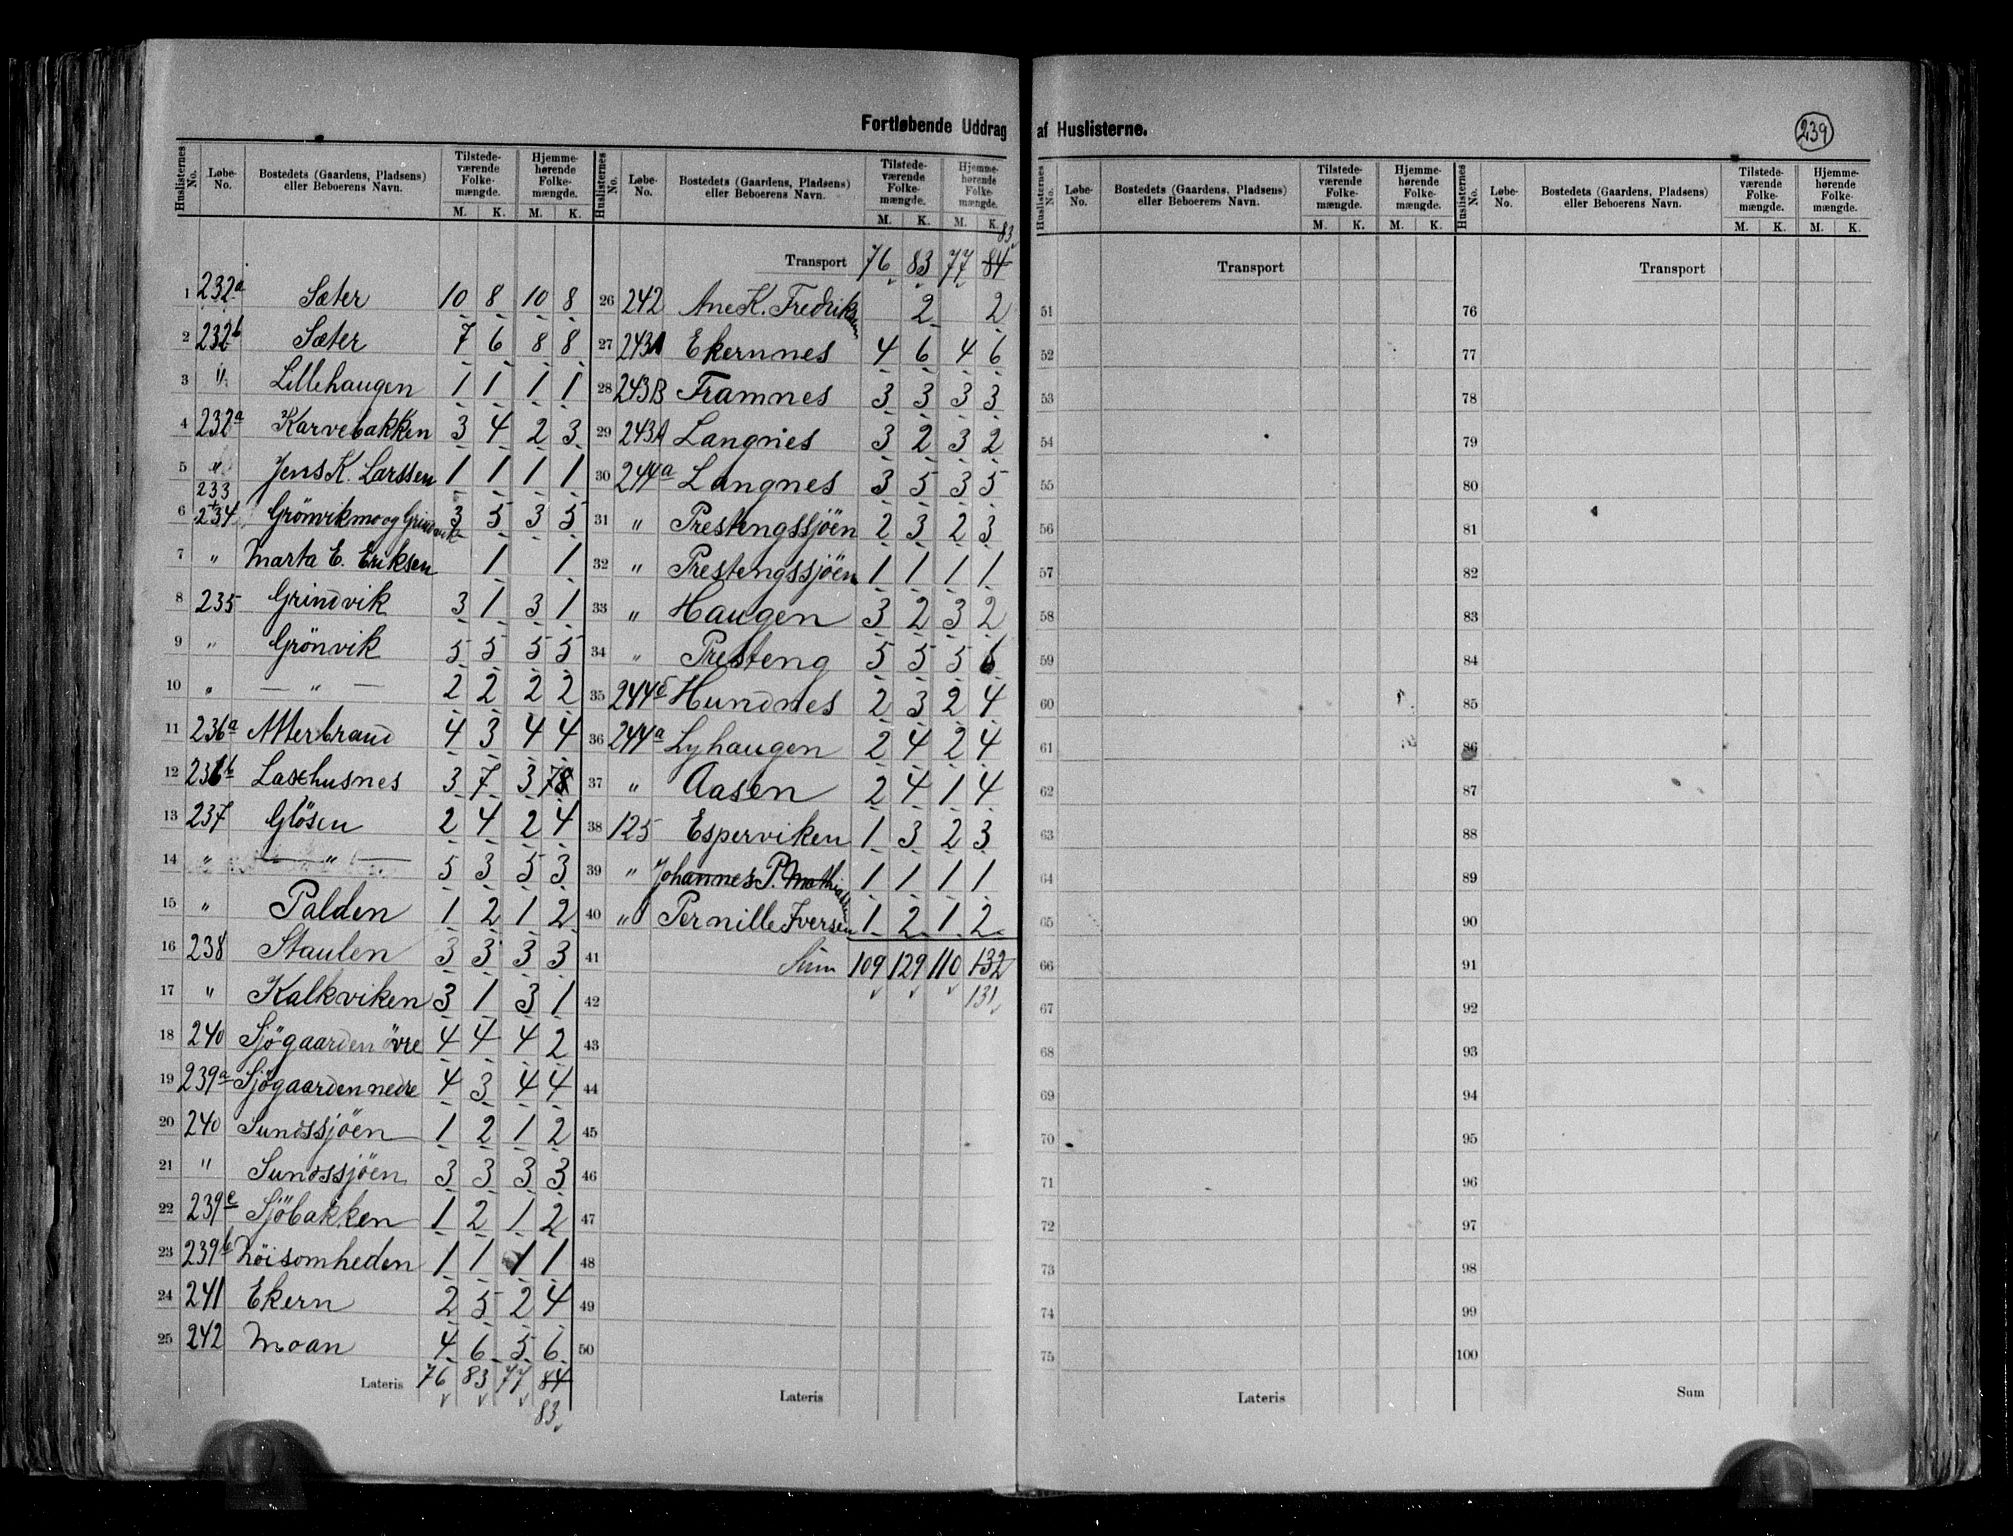 Fortløbende Uddrag af Huslisterne.
239
Huslisternes No. | Løbe-No. | Bostedets (Gaardens, Pladsens) eller Beboerens Navn. | Tilstedeværende Folkemængde. M. K. | Hjemmehørende Folkemængde. M. K.
1 232a Sæter 10 8 10 8
2 232b Sæter 7 6 8 8
3 " Lillehaugen 1 1 1 1
4 232a Karvebakken 3 4 2 3
5 " Jens K. Larssen 1 1 1 1
6 233 + 234 Grönvikmo og Grindvik 3 5 3 5
7 " Marta E. Eriksen 1 1
8 235 Grindvik 3 1 3 1
9 " Grönvik 5 5 5 5
10 " — " — 2 2 2 2
11 236a Atterbraud 4 3 4 4
12 236b Laxhusnes 3 7 3 7
13 237 Glösen 2 4 2 4
14 " — " — 5 3 5 3
15 " Palden 1 2 1 2
16 238 Staulen 3 3 3 3
17 " Kalkviken 3 1 3 1
18 240 Sjögaarden övre 4 4 4 2
19 239a Sjögaarden nedre 4 3 4 4
20 240 Sundssjöen 1 2 1 2
21 " Sundssjöen 3 3 3 3
22 239c Sjöbakken 1 2 1 2
23 239b Nöisomheden 1 1 1 1
24 241 Ekern 2 5 2 4
25 242 Moan 4 6 5 6
Lateris 76 83 77 84
83
Huslisternes No. | Løbe-No. | Bostedets (Gaardens, Pladsens) eller Beboerens Navn. | Tilstedeværende Folkemængde. M. K. | Hjemmehørende Folkemængde. M. K.
83
Transport 76 83 77 84
26 242 Ane K. Fredriksen 2 2
27 243A Ekernnes 4 6 4 6
28 243B Framnes 3 3 3 3
29 243A Langnes 3 2 3 2
30 244a Langnes 3 5 3 5
31 " Prestengssjöen 2 3 2 3
32 " Prestengssjöen 1 1 1 1
33 " Haugen 3 2 3 2
34 " Presteng 5 5 5 6
35 244b Hundnes 2 3 2 4
36 244a Lyhaugen 2 4 2 4
37 " Aasen 2 4 1 4
38 125 Esperviken 1 3 2 3
39 " Johannes P. Mathiassen 1 1 1 1
40 " Pernille Iversen 1 2 1 2
41 Sum 109 129 110 132
42 131
43
44
45
46
47
48
49
50
Lateris
Huslisternes No. | Løbe-No. | Bostedets (Gaardens, Pladsens) eller Beboerens Navn. | Tilstedeværende Folkemængde. M. K. | Hjemmehørende Folkemængde. M. K.
Transport
51
52
53
54
55
56
57
58
59
60
61
62
63
64
65
66
67
68
69
70
71
72
73
74
75
Lateris
Huslisternes No. | Løbe-No. | Bostedets (Gaardens, Pladsens) eller Beboerens Navn. | Tilstedeværende Folkemængde. M. K. | Hjemmehørende Folkemængde. M. K.
Transport
76
77
78
79
80
81
82
83
84
85
86
87
88
89
90
91
92
93
94
95
96
97
98
99
100
Sum